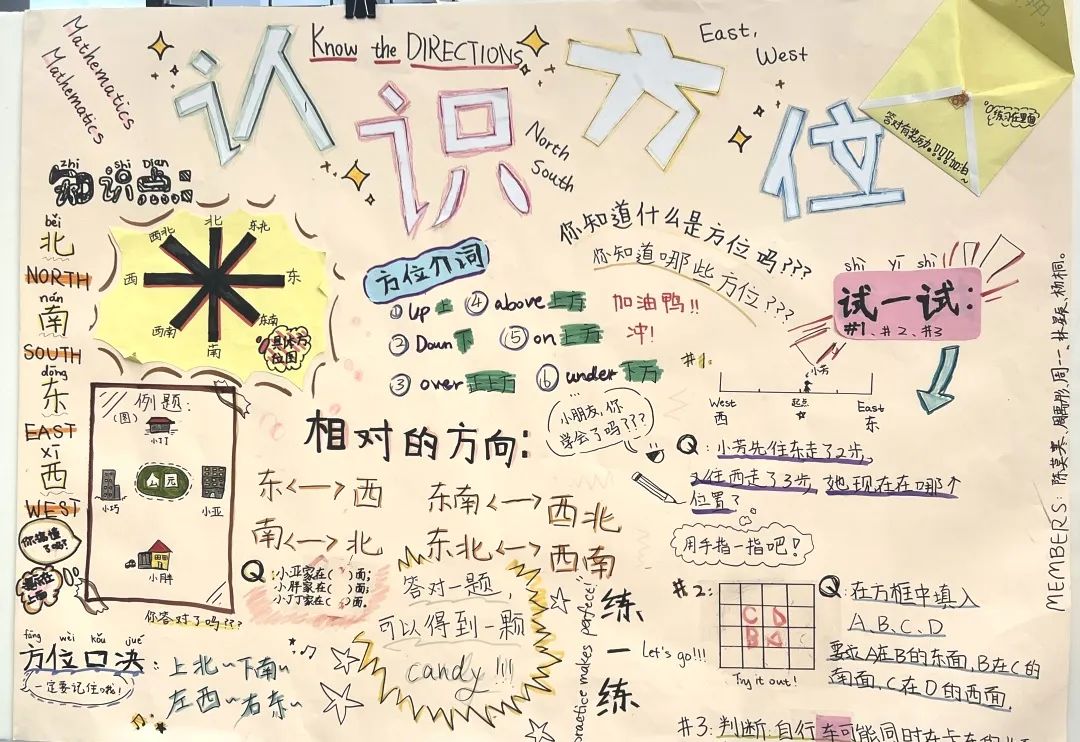 Mathematics
Mathematics
Know the DIRECTIONS
认识方位
East,
West
North
South
答对有奖励!!!加油~
练习在里面
zhi shi Dian
知识点:
běi
北
NORTH
nán
南
SOUTH
dōng
东
EAST
xī
西
WEST
北
西北
东北
西
东
西南
东南
南
具体方位图
方位介词
① Up 上
④ above 上方
② Down 下
⑤ on 上方
③ over 正上方
⑥ under 下方
加油鸭!!
冲!
你知道什么是方位吗???
你知道哪些方位???
shì yī shì
试一试:
#1、#2、#3
例题:
(图)
小丁
小巧
公园
小亚
小胖
你搞懂了吗?
Q:小亚家在( )面;
小胖家在( )面;
小丁家在( )面.
你答对了吗???
相对的方向:
东<—>西
南<—>北
东南<—>西北
东北<—>西南
小朋友,你
学会了吗???
#1:
小芳
West
西
起点
East
东
Q:小芳先往东走了2步,
又往西走了3步,她现在在哪个
位置?
用手指一指吧!
fāng wèi kǒu jué
方位口决:
一定要记住哦!
上北~下南~
左西~右东~
答对一题,
可以得到一颗
candy!!!
practice makes perfect
练一练
Let's go!!!
#2:
C D
B A
Try it out!
Q:在方框中填入
A、B、C、D
要求A在B的东面,B在C的
南面,C在D的西面.
#3:判断:自行车可能同时在卡车的
MEMBERS: